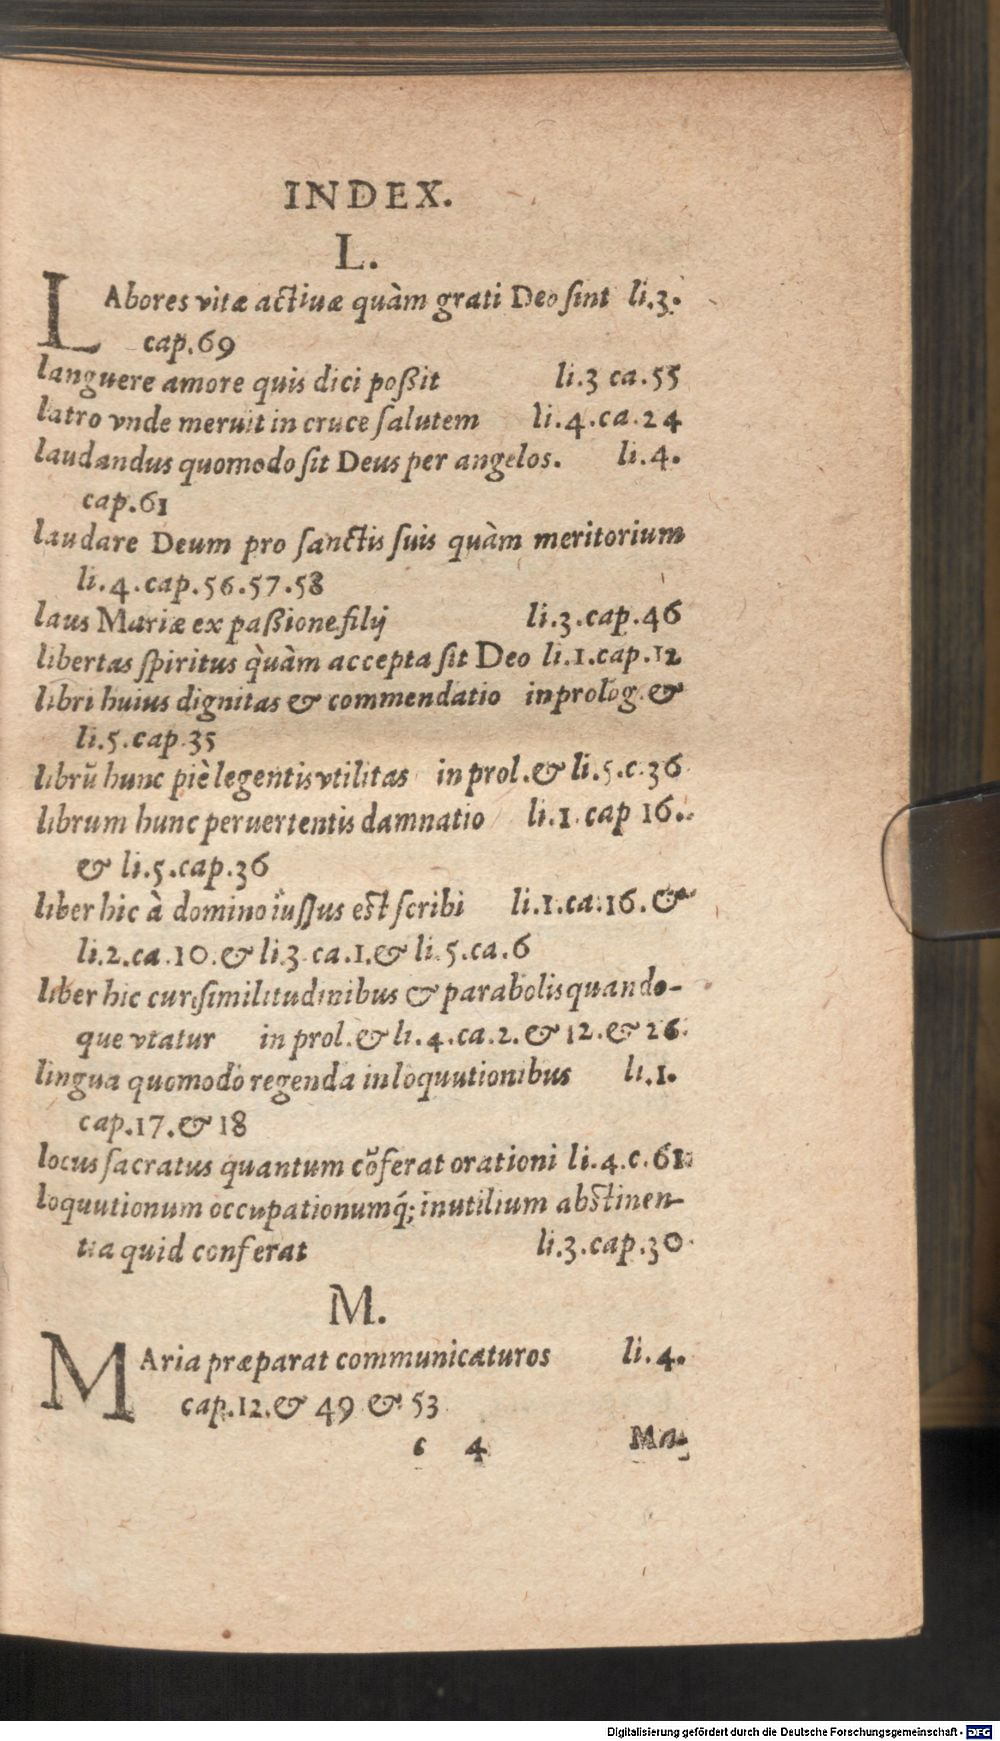 INDEX.
L.
LAbores vitæ actiuæ quàm grati Deo sint li.3.
cap.69
languere amore quis dici poßit li.3 ca.55
latro vnde meruit in cruce salutem li.4.ca.24
laudandus quomodo sit Deus per angelos. li.4.
cap.61
laudare Deum pro sanctis suis quàm meritorium
li.4.cap.56.57.58
laus Mariæ ex paßione filij li.3.cap.46
libertas spiritus quàm accepta sit Deo li.1.cap.12
libri huius dignitas & commendatio in prolog. &
li.5.cap.35
librũ hunc piè legentis vtilitas in prol.& li.5.c.36
librum hunc peruertentis damnatio li.1.cap 16.
& li.5.cap.36
liber hic à domino iussus est scribi li.1.ca.16.&
li.2.ca.10.& li.3.ca.1.& li.5.ca.6
liber hic cur similitudinibus & parabolis quando-
que vtatur in prol.& li.4.ca.2.& 12.& 26.
lingua quomodo regenda in loquutionibus li.1.
cap.17.& 18
locus sacratus quantum cõferat orationi li.4.c.61.
loquutionum occupationumq́; inutilium abstinen-
tia quid conferat li.3.cap.30
M.
MAria præparat communicaturos li.4.
cap.12.& 49 & 53
c 4 Ma-
Digitalisierung gefördert durch die Deutsche Forschungsgemeinschaft - DFG